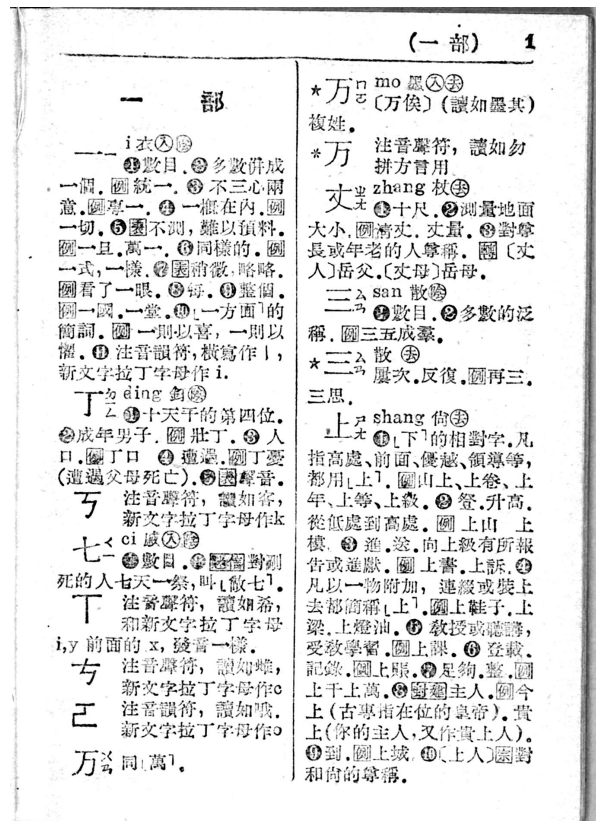 (一部) 1
一 部
一 i 衣㊀入陰
❶數目.❷多數併成
一個.例統一.❸不三心兩
意.例專一.❹一概在內.例
一切.❺表不測,難以預料.
例一旦.萬一.❻同樣的.例
一式,一樣.❼表稍微,略略.
例看了一眼.❽每.❾整個.
例一國.一堂.❿⌊一方面⌉的
簡詞.例一則以喜,一則以
懼.⓫注音韻符,橫寫作丨,
新文字拉丁字母作i.
丁 ㄉㄧㄥ ding
❶十天干的第四位.
❷成年男子.例壯丁.❸人
口.例丁口 ❹遭遇.例丁憂
(遭遇父母死亡).❺聲音.
ㄎ 注音聲符,讀如客,
新文字拉丁字母作k
七 ㄑㄧ ci 戚入陰
❶數目.❷對剛
死的人七天一祭,叫⌊散七⌉.
ㄒ 注音聲符,讀如希,
和新文字拉丁字母
i,y 前面的 x,發音一樣.
ㄘ 注音聲符,讀如雌,
新文字拉丁字母作c
ㄛ 注音韻符,讀如哦.
新文字拉丁字母作o
万 ㄨㄢ 同⌊萬⌉.
*万 ㄇㄛ mo 墨入去
〔万俟〕(讀如墨其)
複姓.
*万 注音聲符,讀如勿
拼方言用
丈 ㄓㄤ zhang 杖去
❶十尺.❷測量地面
大小.例清丈.丈量.❸對尊
長或年老的人尊稱.〔丈
人〕岳父.〔丈母〕岳母.
三 ㄙㄢ san 散陰
❶數目.❷多數的泛
稱.例三五成羣.
*三 ㄙㄢ 散 去
屢次.反復.例再三.
三思.
上 ㄕㄤ shang 尙去
❶⌊下⌉的相對字.凡
指高處、前面、優越、領導等,
都用⌊上⌉.例山上、上卷、上
年、上等、上級.❷登.升高.
從低處到高處.例上山 上
樓.❸進.送.向上級有所報
告或進獻.例上書.上訴.❹
凡以一物附加,連綴或裝上
去都簡稱⌊上⌉.例上鞋子.上
梁.上燈油.❺教授或聽講,
受敎學習.例上課.❻登載.
記錄.例上賬.❼足夠.整.例
上千上萬.❽主人.例今
上(古專指在位的皇帝).貴
上(你的主人,又作貴上人).
❾到.例上城.❿〔上人〕對
和尙的尊稱.